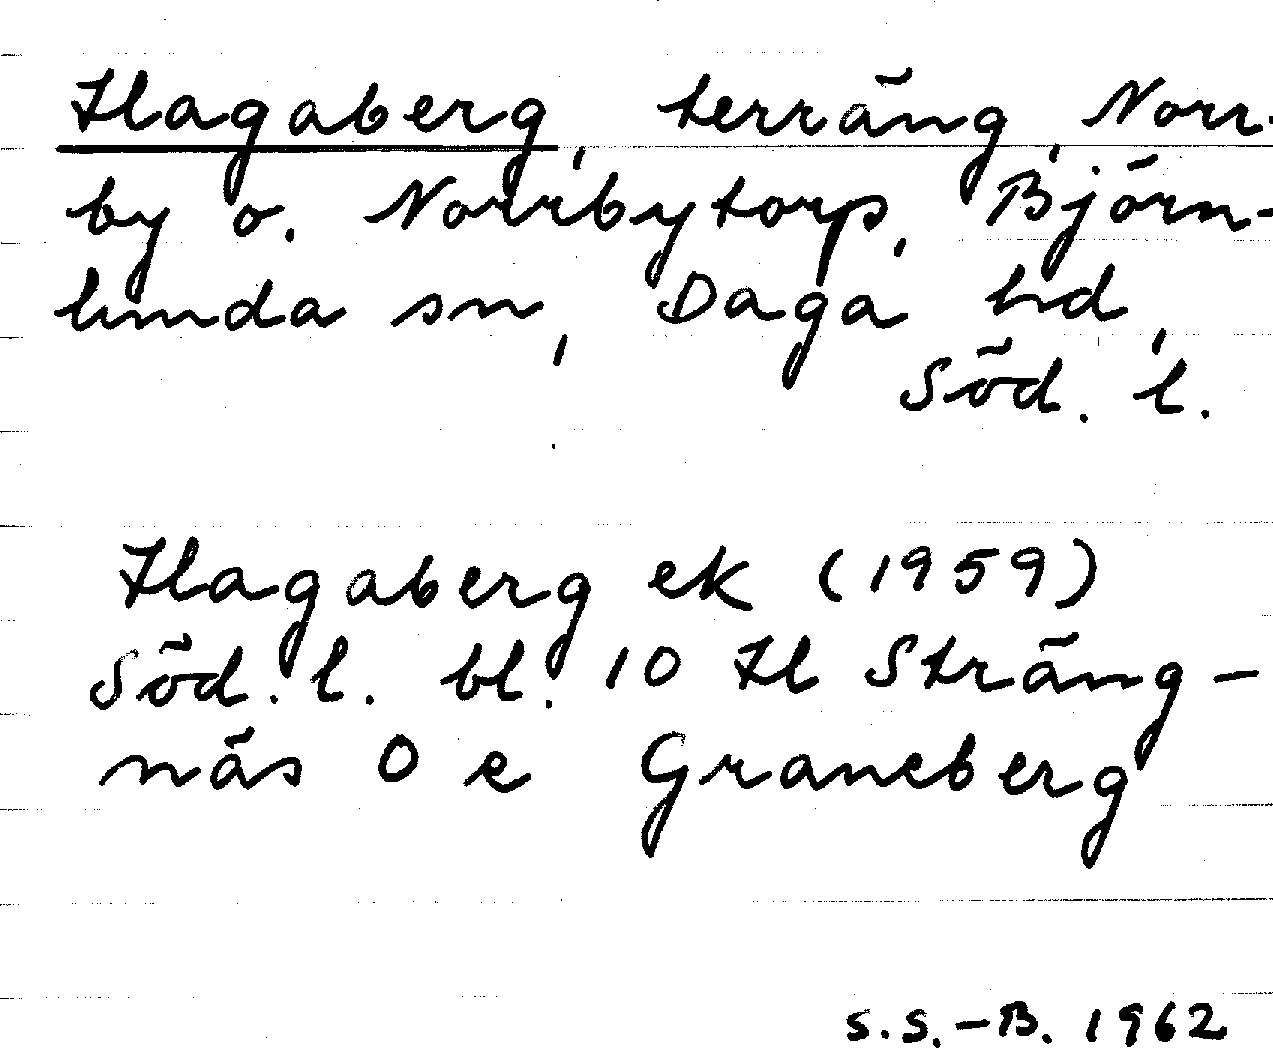 Hagaberg, terräng, Norr-
by o. Norrbytorp, Björn-
lunda sn, Daga hd,
Söd. l.
Hagaberg ek (1959)
Söd. l. bl. 10 H Sträng-
näs O e Graneberg
S.S.-B. 1962